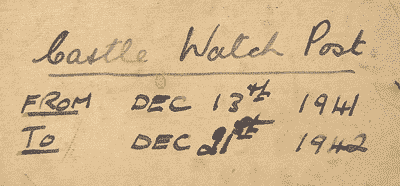 Castle Watch Post
FROM DEC 13th 1941
TO DEC 21st 1942